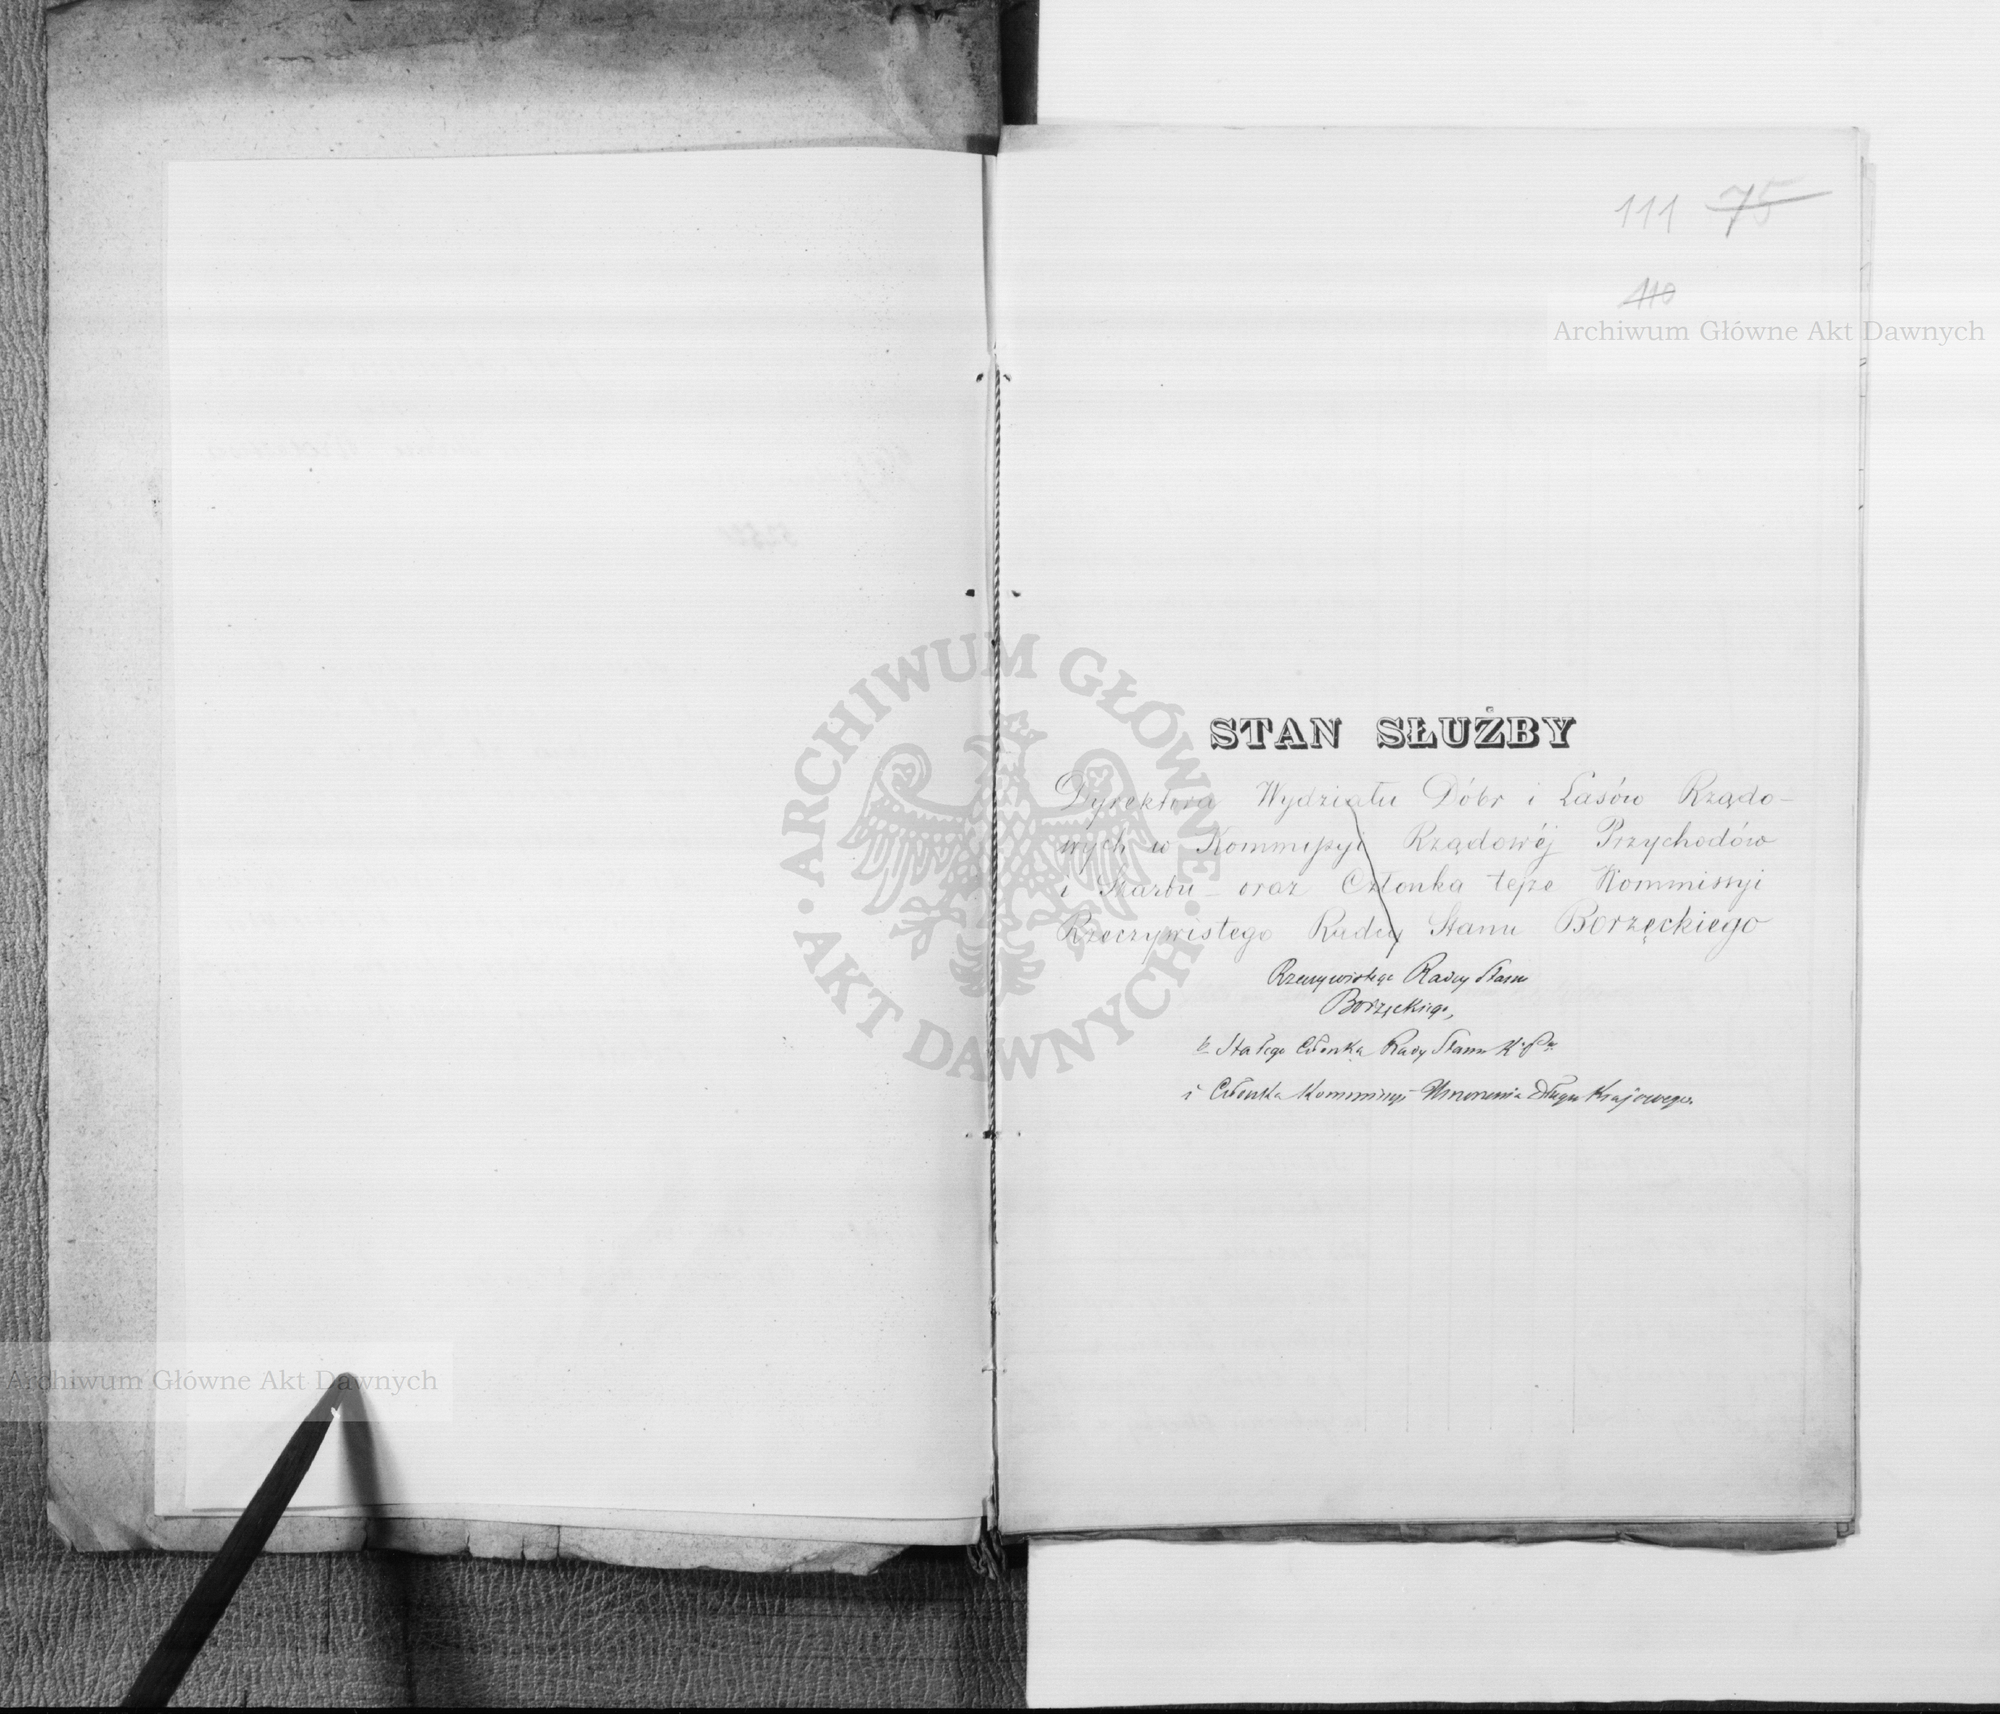 111 75
110
Archiwum Główne Akt Dawnych
STAN SŁUŻBY
Dyrektora Wydziału Dóbr i Lasów Rządo-
wych w Kommissyi Rządowéj Przychodów
i Skarbu - oraz Członka tejże Kommissyi
Rzeczywistego Radcy Stanu Borzęckiego
Rzeczywistego Radcy Stanu
Borzęckiego,
Stałego Członka Rady Stanu K. P.
i Członka Kommissyi Umorzenia Długu Krajowego.
ARCHIWUM GŁÓWNE
AKT DAWNYCH
Archiwum Główne Akt Dawnych